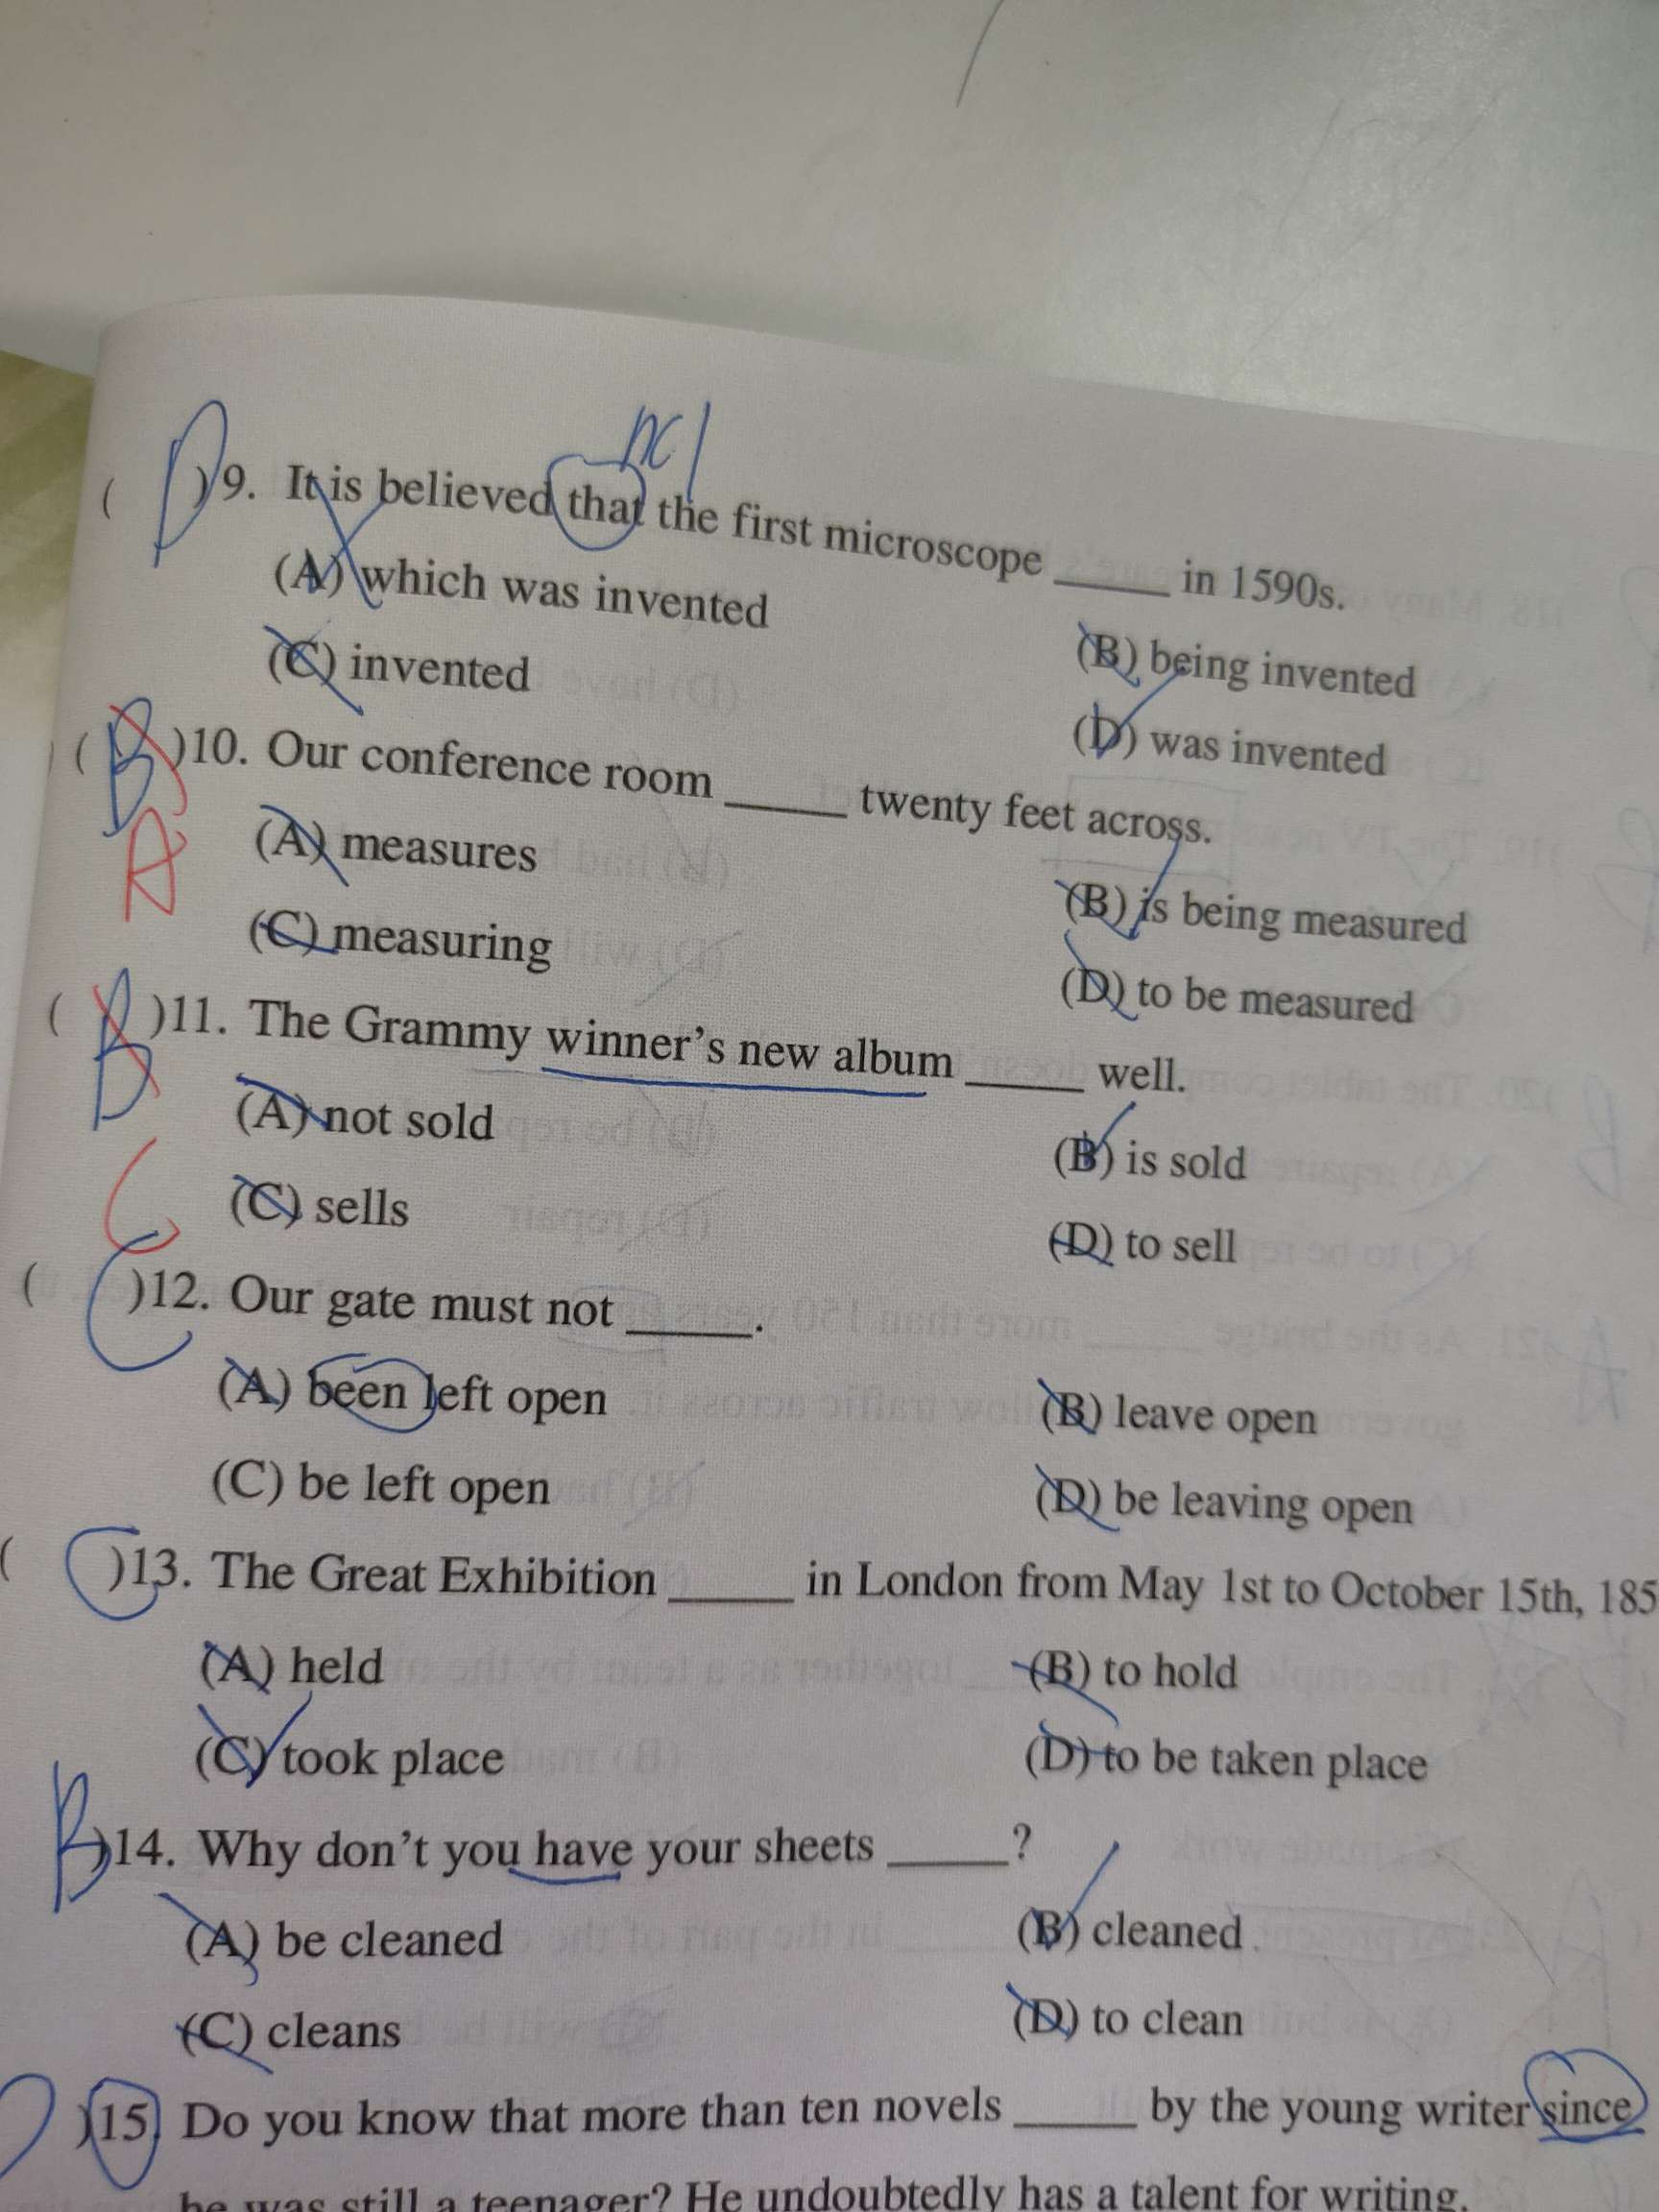 ncl
( D )9. It is believed that the first microscope _____ in 1590s.
(A) which was invented
(B) being invented
(C) invented
(D) was invented
( B )10. Our conference room _____ twenty feet across.
A
(A) measures
(B) is being measured
(C) measuring
(D) to be measured
( B )11. The Grammy winner's new album _____ well.
(A) not sold
(B) is sold
C
(C) sells
(D) to sell
( C )12. Our gate must not _____.
(A) been left open
(B) leave open
(C) be left open
(D) be leaving open
( C )13. The Great Exhibition _____ in London from May 1st to October 15th, 185
(A) held
(B) to hold
(C) took place
(D) to be taken place
B )14. Why don't you have your sheets _____?
(A) be cleaned
(B) cleaned
(C) cleans
(D) to clean
)15. Do you know that more than ten novels _____ by the young writer since
he was still a teenager? He undoubtedly has a talent for writing.